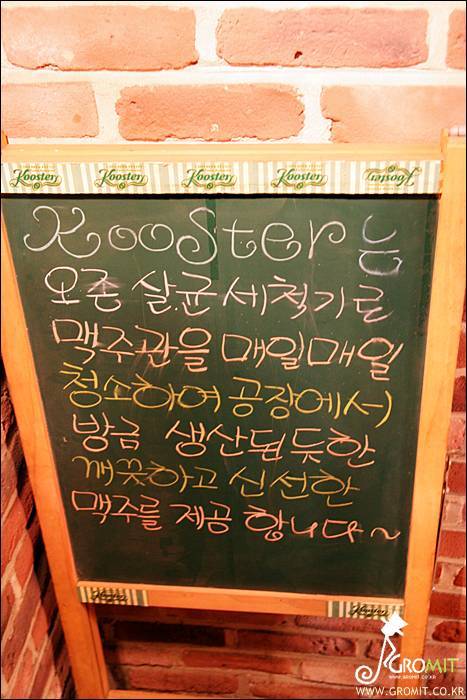 Kooster Kooster Kooster Kooster Kooster
Kooster는
오존 살균세척기로
맥주관을 매일매일
청소하여 공장에서
방금 생산된듯한
깨끗하고 신선한
맥주를 제공합니다~
Kooster Kooster
GROMIT
www.gromit.co.kr
WWW.GROMIT.CO.KR